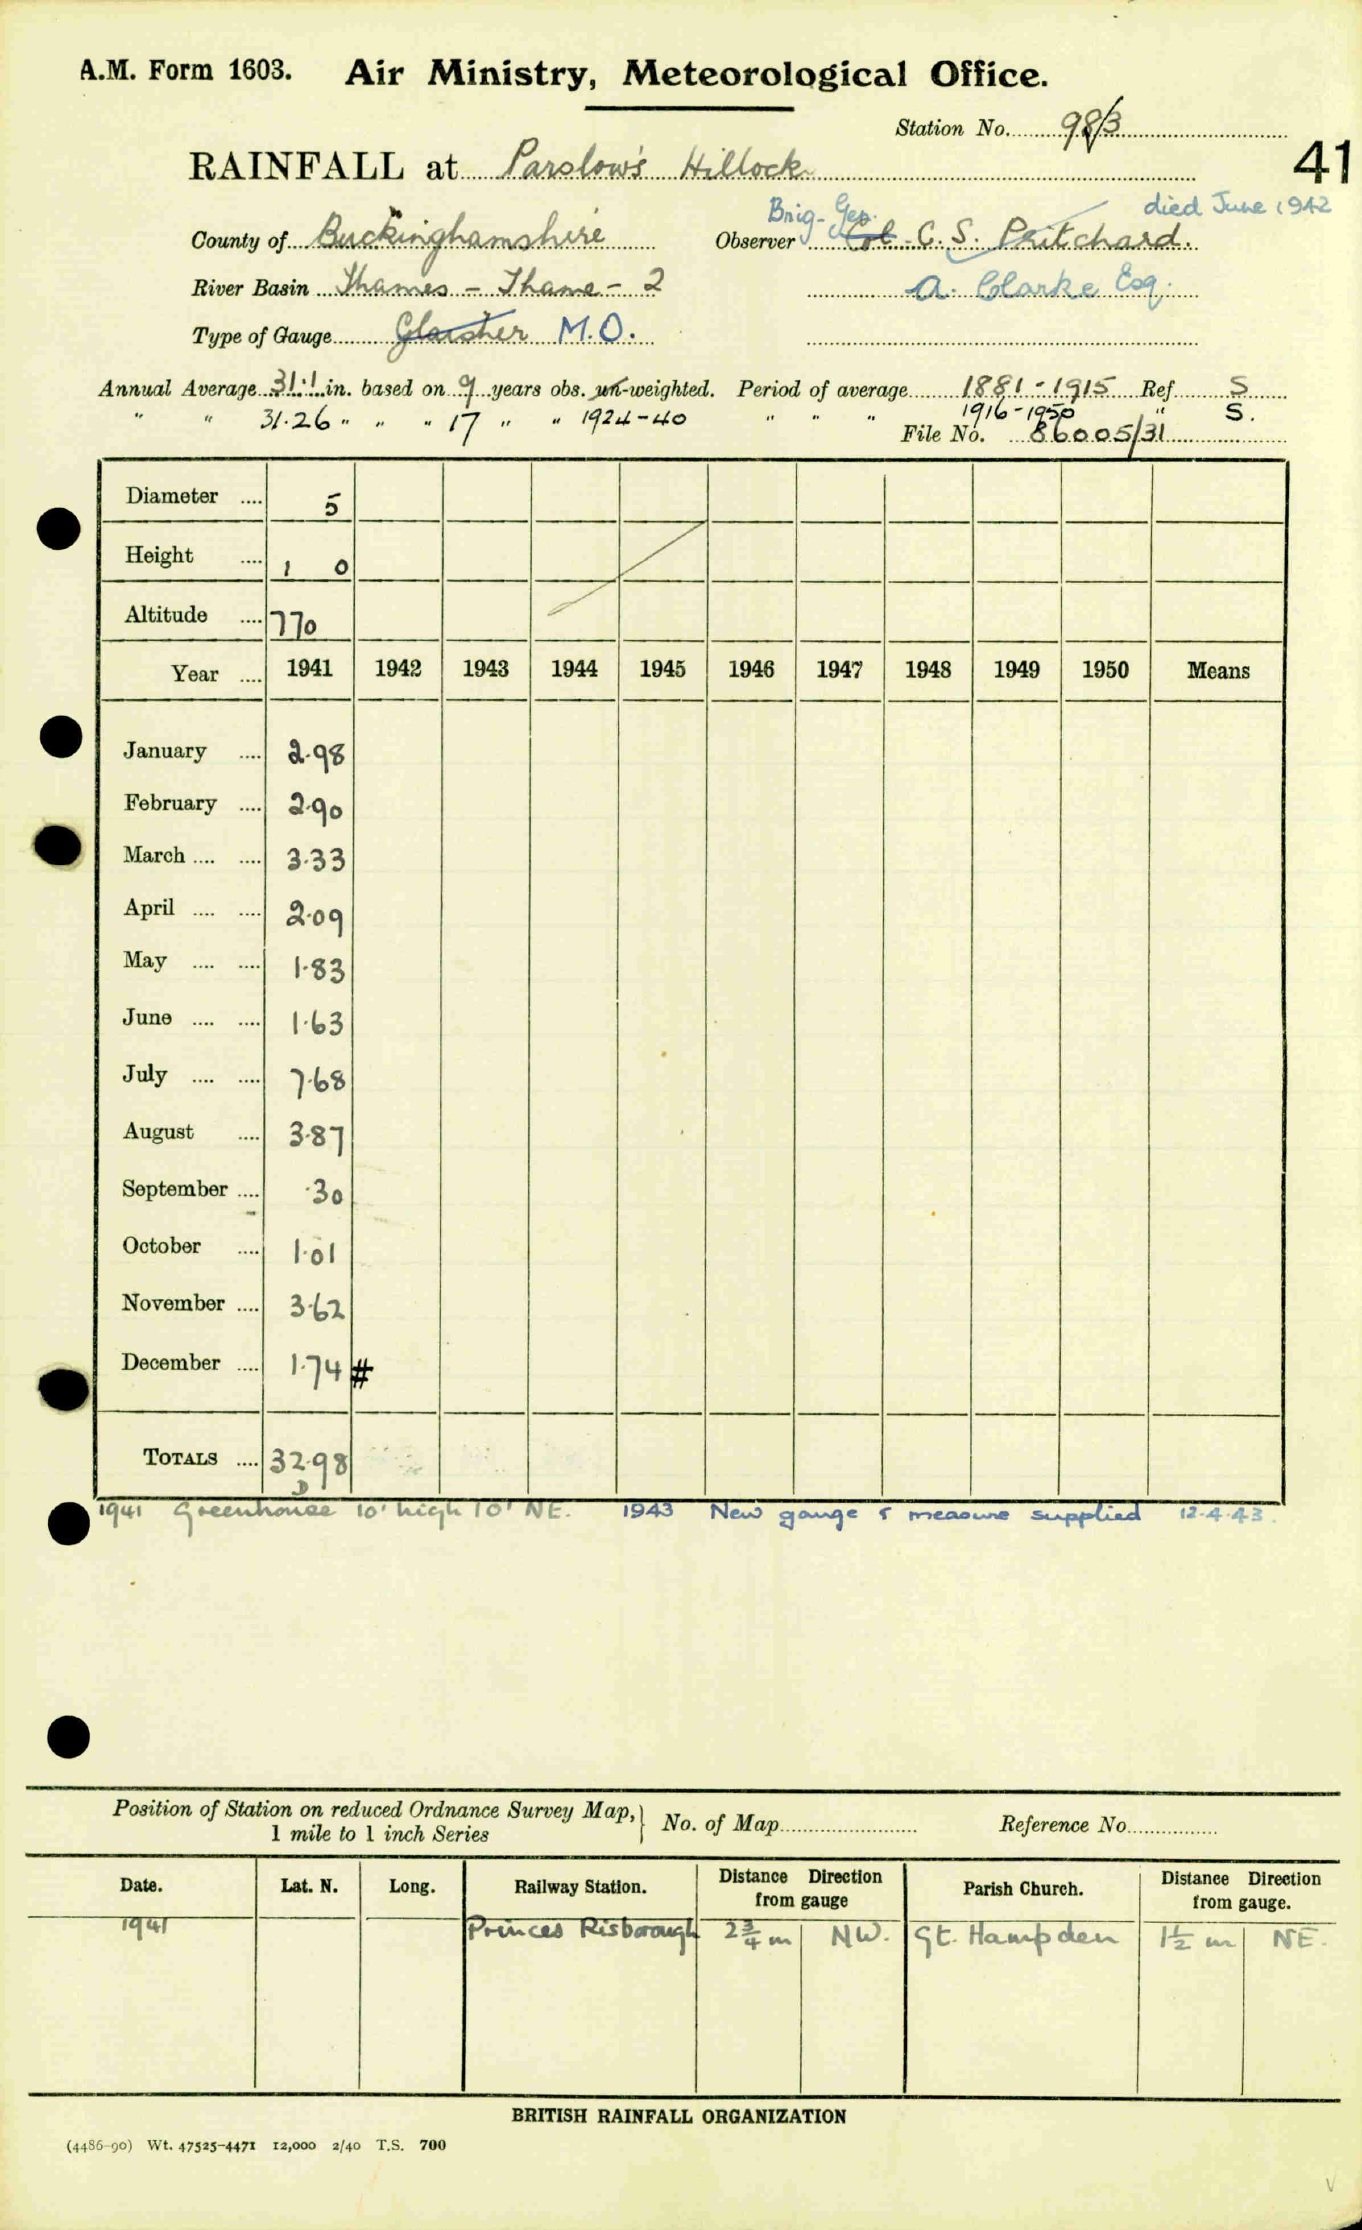 A.M. Form 1603. Air Ministry, Meteorological Office.
Station No. 98/3
41
RAINFALL at Parslow's Hillock
died June 1942
Brig-Gen.
County of Buckinghamshire Observer Col. C. S. Pritchard.
River Basin Thames - Thame - 2 A. Clarke Esq.
Type of Gauge Glaisher M.O.
Annual Average 31.1 in. based on 9 years obs. un-weighted. Period of average 1881-1915 Ref S
" " 31.26 " " " 17 " " 1924-40 " " " 1916-1950 " S.
File No. 86005/31
Diameter .... 5
Height .... 1 0
Altitude .... 770
Year .... 1941 1942 1943 1944 1945 1946 1947 1948 1949 1950 Means
January .... 2.98
February .... 2.90
March .... .... 3.33
April .... .... 2.09
May .... .... 1.83
June .... .... 1.63
July .... .... 7.68
August .... 3.87
September .... .30
October .... 1.01
November .... 3.62
December .... 1.74 #
TOTALS .... 32.98
D
1941 Greenhouse 10' high 10' NE. 1943 New gauge & measure supplied 12.4.43.
Position of Station on reduced Ordnance Survey Map, } No. of Map Reference No.
1 mile to 1 inch Series
Date. Lat. N. Long. Railway Station. Distance Direction from gauge Parish Church. Distance Direction from gauge.
1941 Princes Risborough 2 3/4 m NW. Gt. Hampden 1 1/2 m NE.
BRITISH RAINFALL ORGANIZATION
(4486-90) Wt. 47525-4471 12,000 2/40 T.S. 700